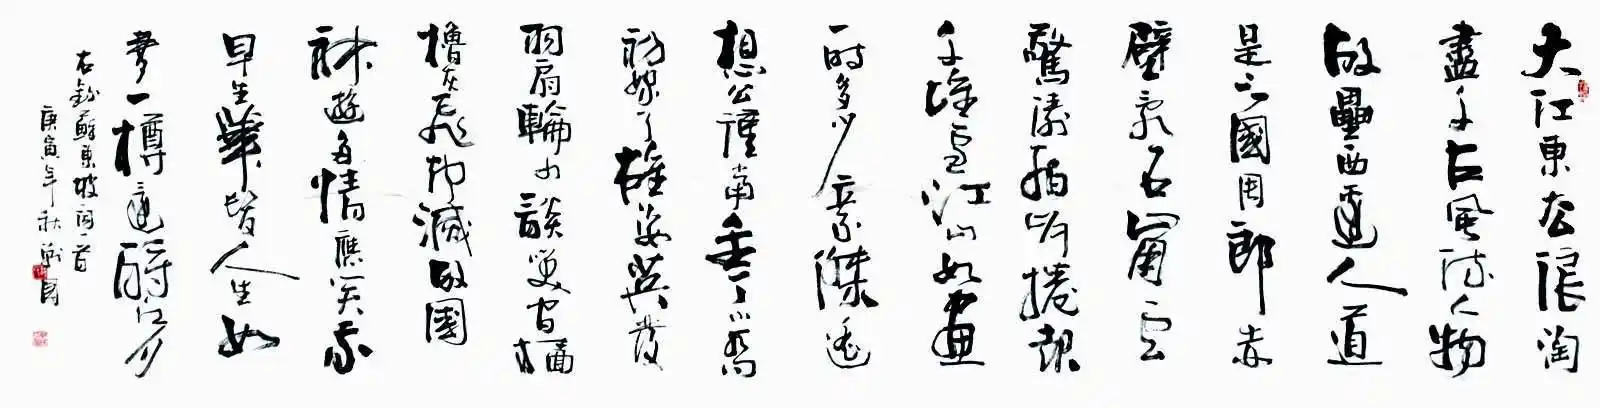 大江東去浪淘
盡千古風流人物
故壘西邊人道
是三國周郎赤
壁亂石崩雲
驚濤拍岸捲起
千堆雪江山如畫
一時多少豪傑遙
想公瑾當年小喬
初嫁了雄姿英發
羽扇輪巾談笑間檣
櫓灰飛烟滅故國
神遊多情應笑我
早生華髮人生如
夢一樽還酹江月
右錄蘇東坡词一首
庚寅年秋